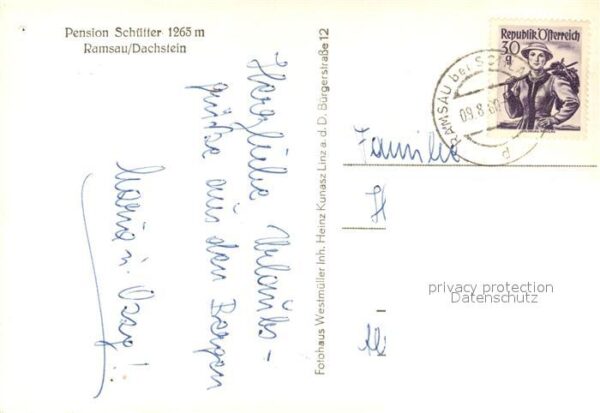 Pension Schütter 1265 m
Ramsau/Dachstein
Herzliche Urlaubs-
grüße aus den Bergen
Fotohaus Westmüller Inh. Heinz Kunasz Linz a. d. D. Bürgerstraße 12
Republik Österreich
30
g
RAMSAU bei
Familie
H
privacy protection
Datenschutz